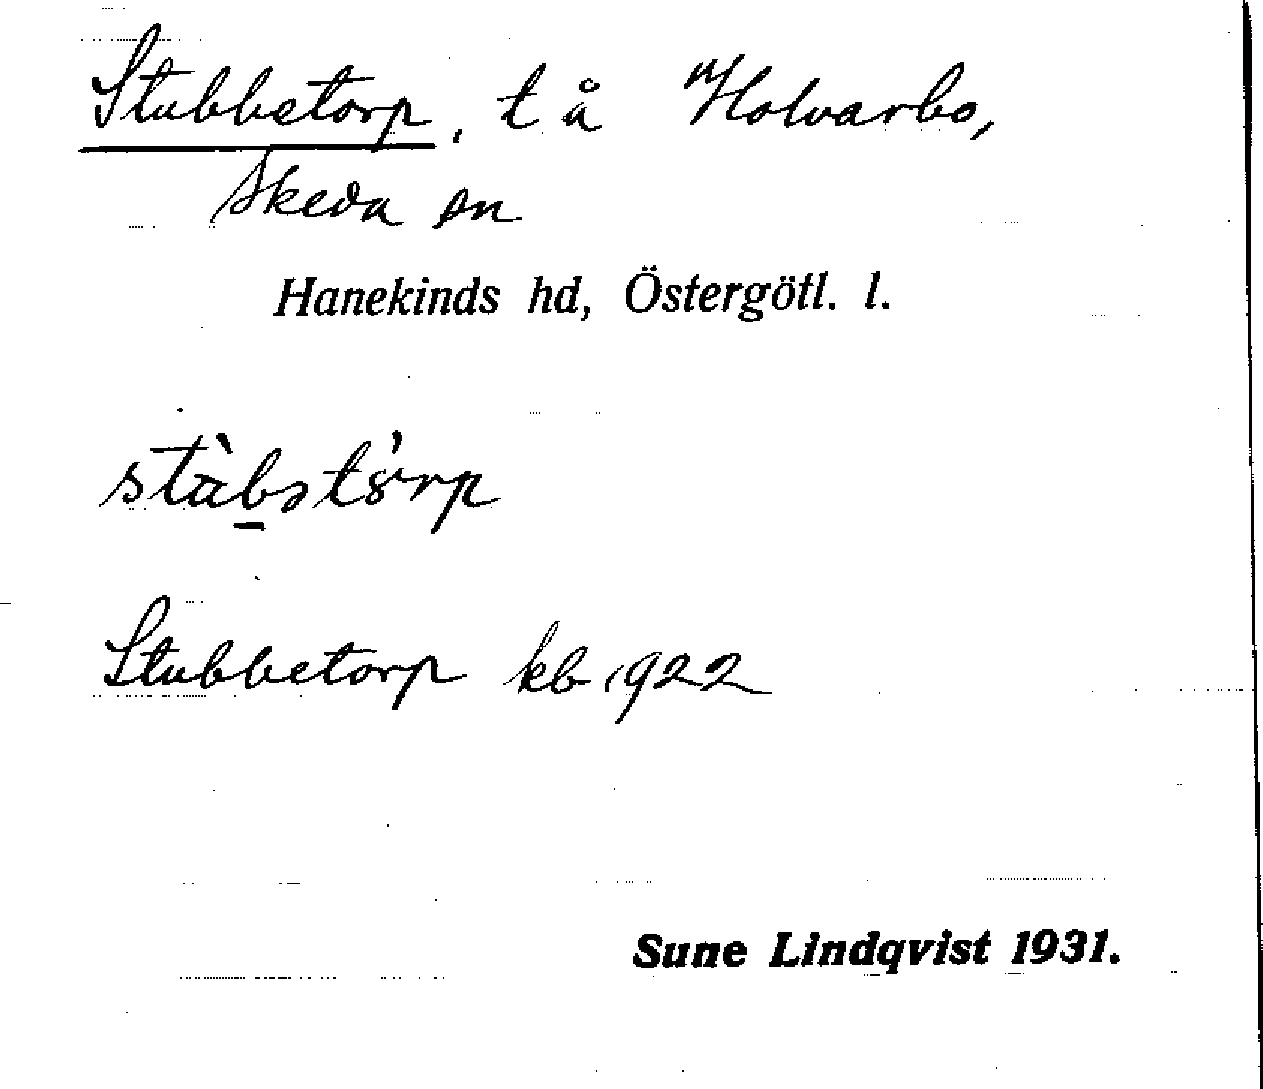 Stubbetorp, t å Holvarbo,
Skeda sn
Hanekinds hd, Östergötl. l.
Stubbetorp kb 1922
Sune Lindqvist 1931.